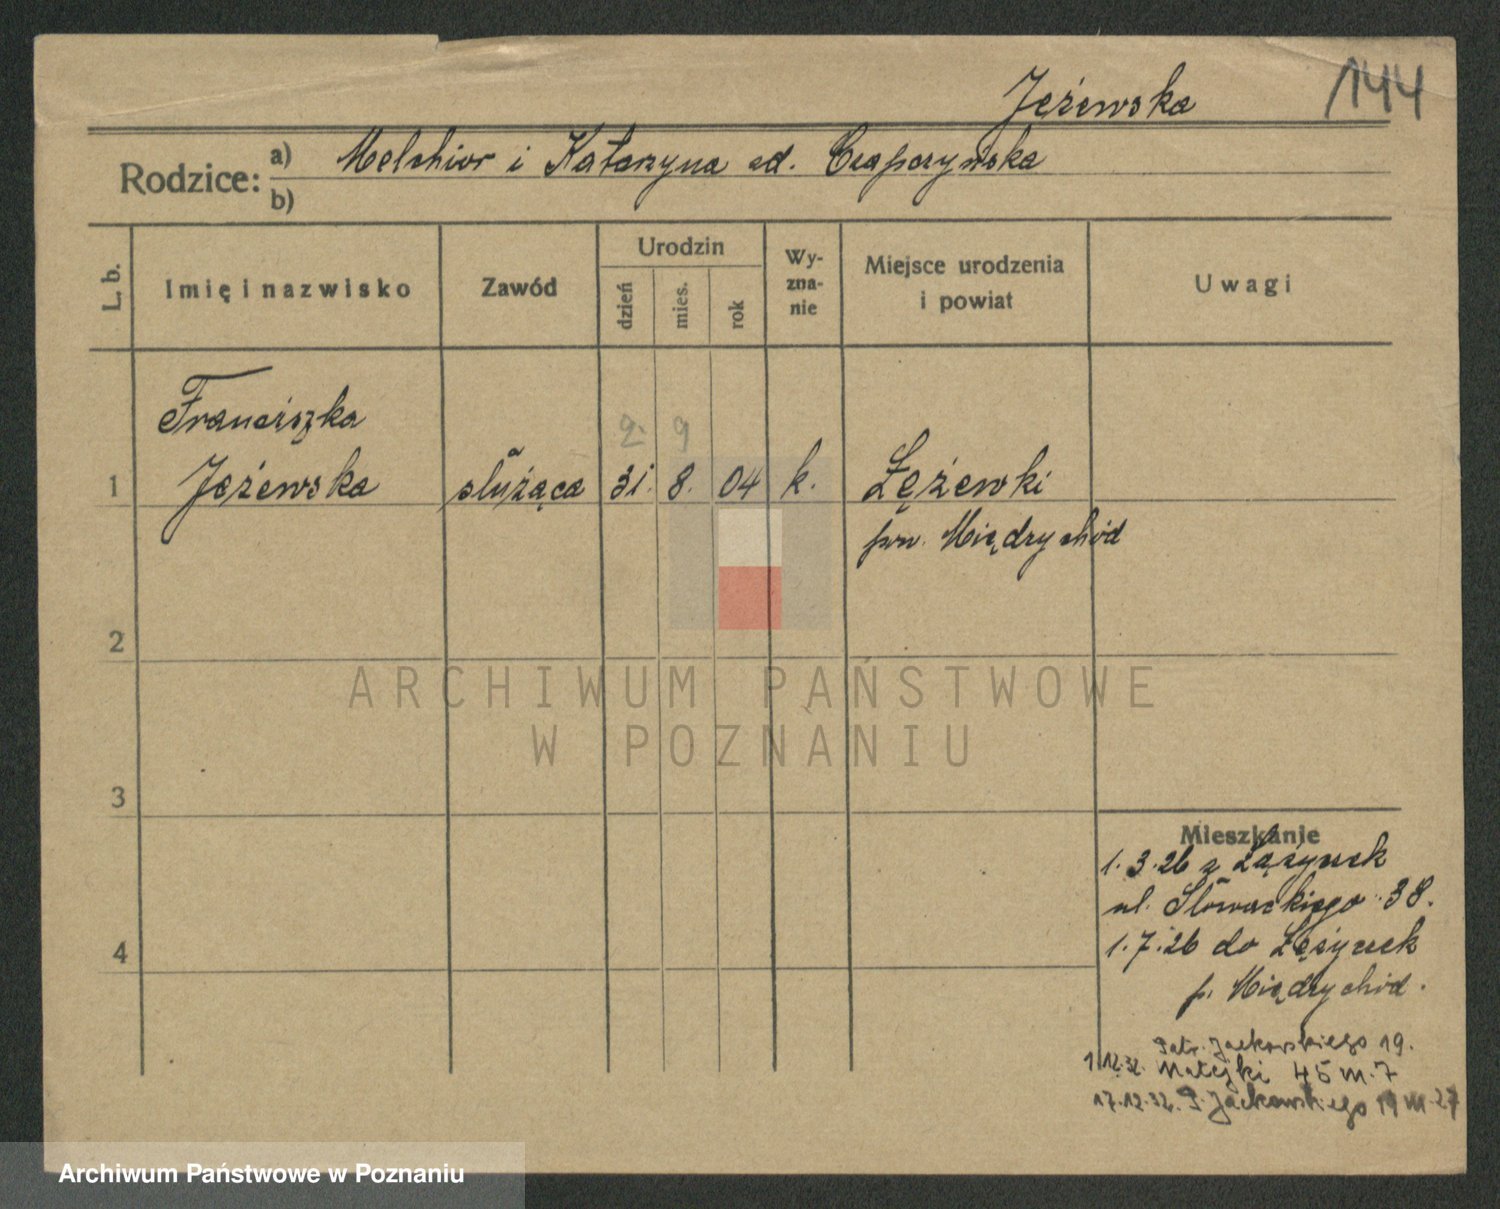 Jeżewska 144
Rodzice: a) Melchior i Katarzyna od. Czapczyńska
b)
L. b.
Imię i nazwisko
Zawód
Urodzin
dzień
mies.
rok
Wy-
zna-
nie
Miejsce urodzenia
i powiat
Uwagi
Franciszka
2. 9
1 Jeżewska służąca 31. 8. 04 k. Łężewki
pow. Międzychód
2
3
4
Mieszkanie
1.3.26 z Łężyczek
ul. Słowackiego 38.
1.7.26 do Łężyczek
p. Międzychód.
Patr. Jackowskiego 19.
1.12.32. Matejki 45 m. 7
17.12.32. P. Jackowskiego 19 m. 27
ARCHIWUM PAŃSTWOWE
W POZNANIU
Archiwum Państwowe w Poznaniu